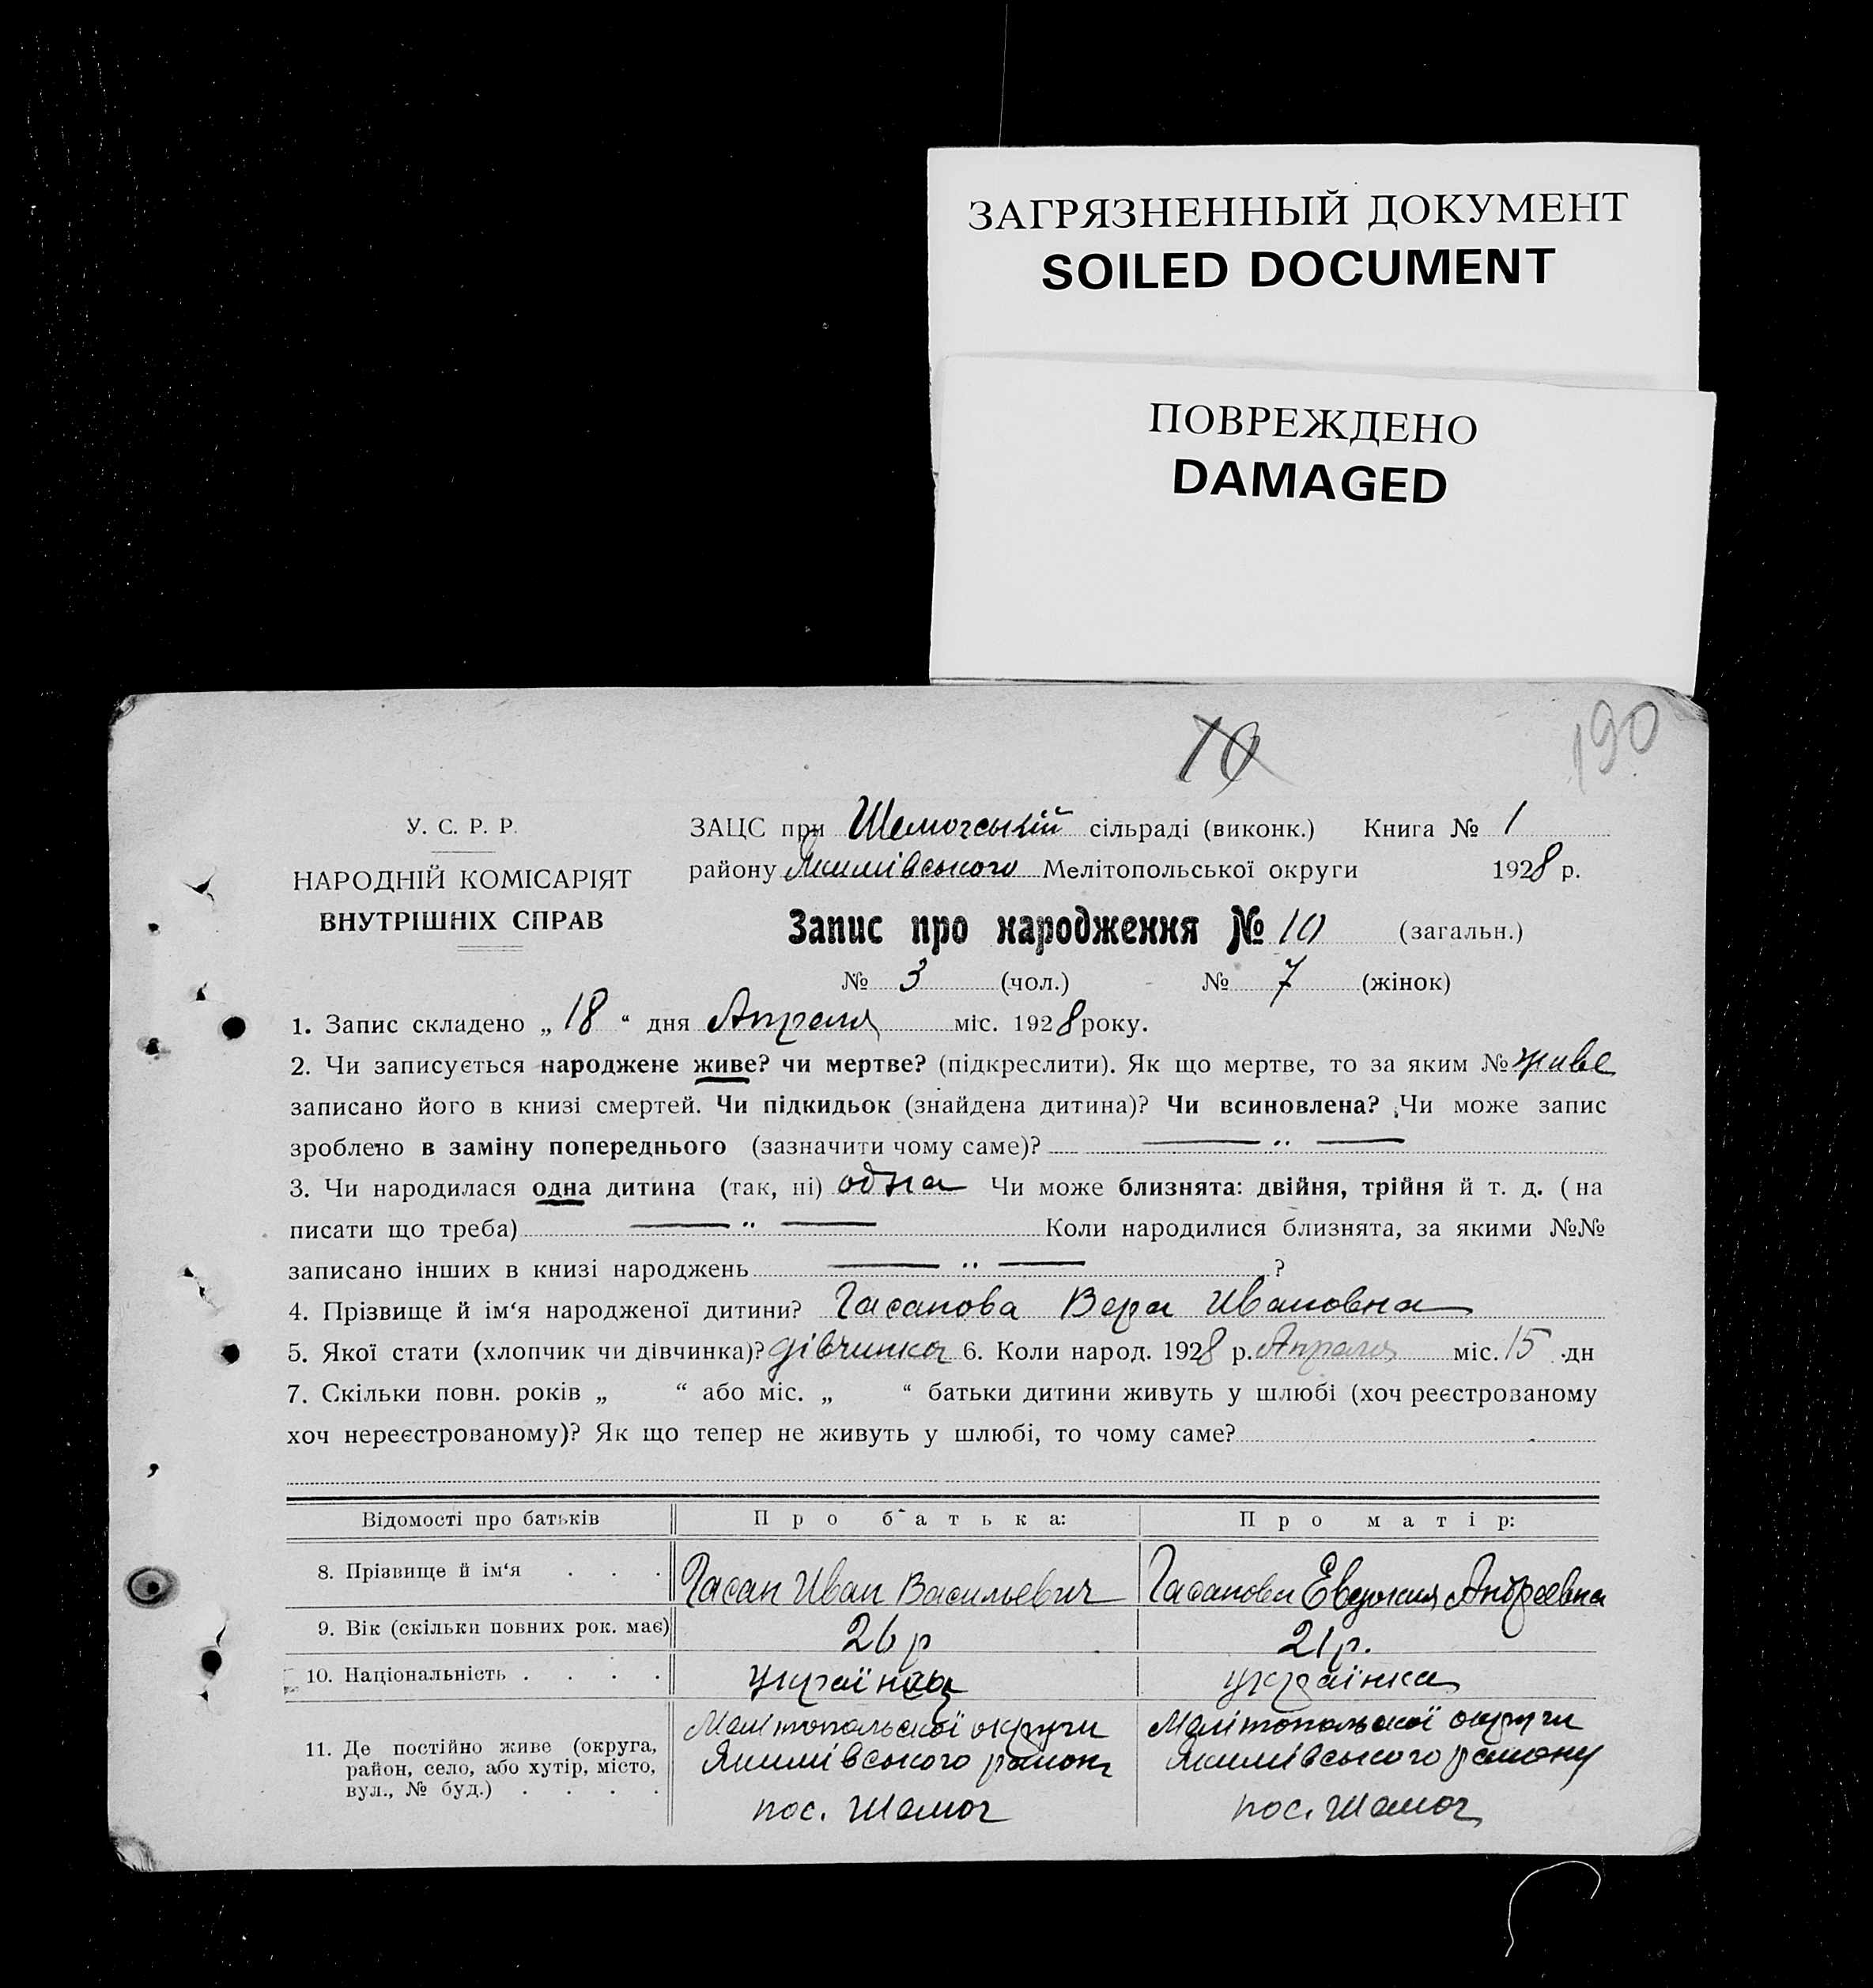 ЗАГРЯЗНЕННЫЙ ДОКУМЕНТ
SOILED DOCUMENT
ПОВРЕЖДЕНО
DAMAGED
10
190
У. С. Р. Р.
НАРОДНІЙ КОМІСАРІЯТ
ВНУТРІШНІХ СПРАВ
ЗАЦС при сільраді (виконк.) Книга № 1
району Якимівського Мелітопольської округи 1928 р.
Запис про народження № 10 (загальн.)
№ 3 (чол.) № 7 (жінок)
1. Запис складено „ 18 “ дня Апреля міс. 1928 року.
2. Чи записується народжене живе? чи мертве? (підкреслити). Як що мертве, то за яким № живе
записано його в книзі смертей. Чи підкидьок (знайдена дитина)? Чи всиновлена? Чи може запис
зроблено в заміну попереднього (зазначити чому саме)? — „ —
3. Чи народилася одна дитина (так, ні) одна Чи може близнята: двійня, трійня й т. д. (на
писати що треба) — „ — Коли народилися близнята, за якими №№
записано інших в книзі народжень — „ — ?
4. Прізвище й ім‘я народженої дитини? Гасанова Вера Ивановна
5. Якої стати (хлопчик чи дівчинка)? дівчинка 6. Коли народ. 1928 р. Апреля міс. 15 дн
7. Скільки повн. років „ “ або міс. „ “ батьки дитини живуть у шлюбі (хоч реєстрованому
хоч нереєстрованому)? Як що тепер не живуть у шлюбі, то чому саме?
Відомості про батьків Про батька: Про матір:
8. Прізвище й ім‘я . . . Гасан Иван Васильевич Гасанова Евдокия Андреевна
9. Вік (скільки повних рок. має) 26 р 21 р.
10. Національність . . . . українець українка
11. Де постійно живе (округа,
район, село, або хутір, місто,
вул., № буд.) . . . .
Мелітопольської округи
Якимівського району
пос. Шемог
Мелітопольської округи
Якимівського району
пос. Шемог